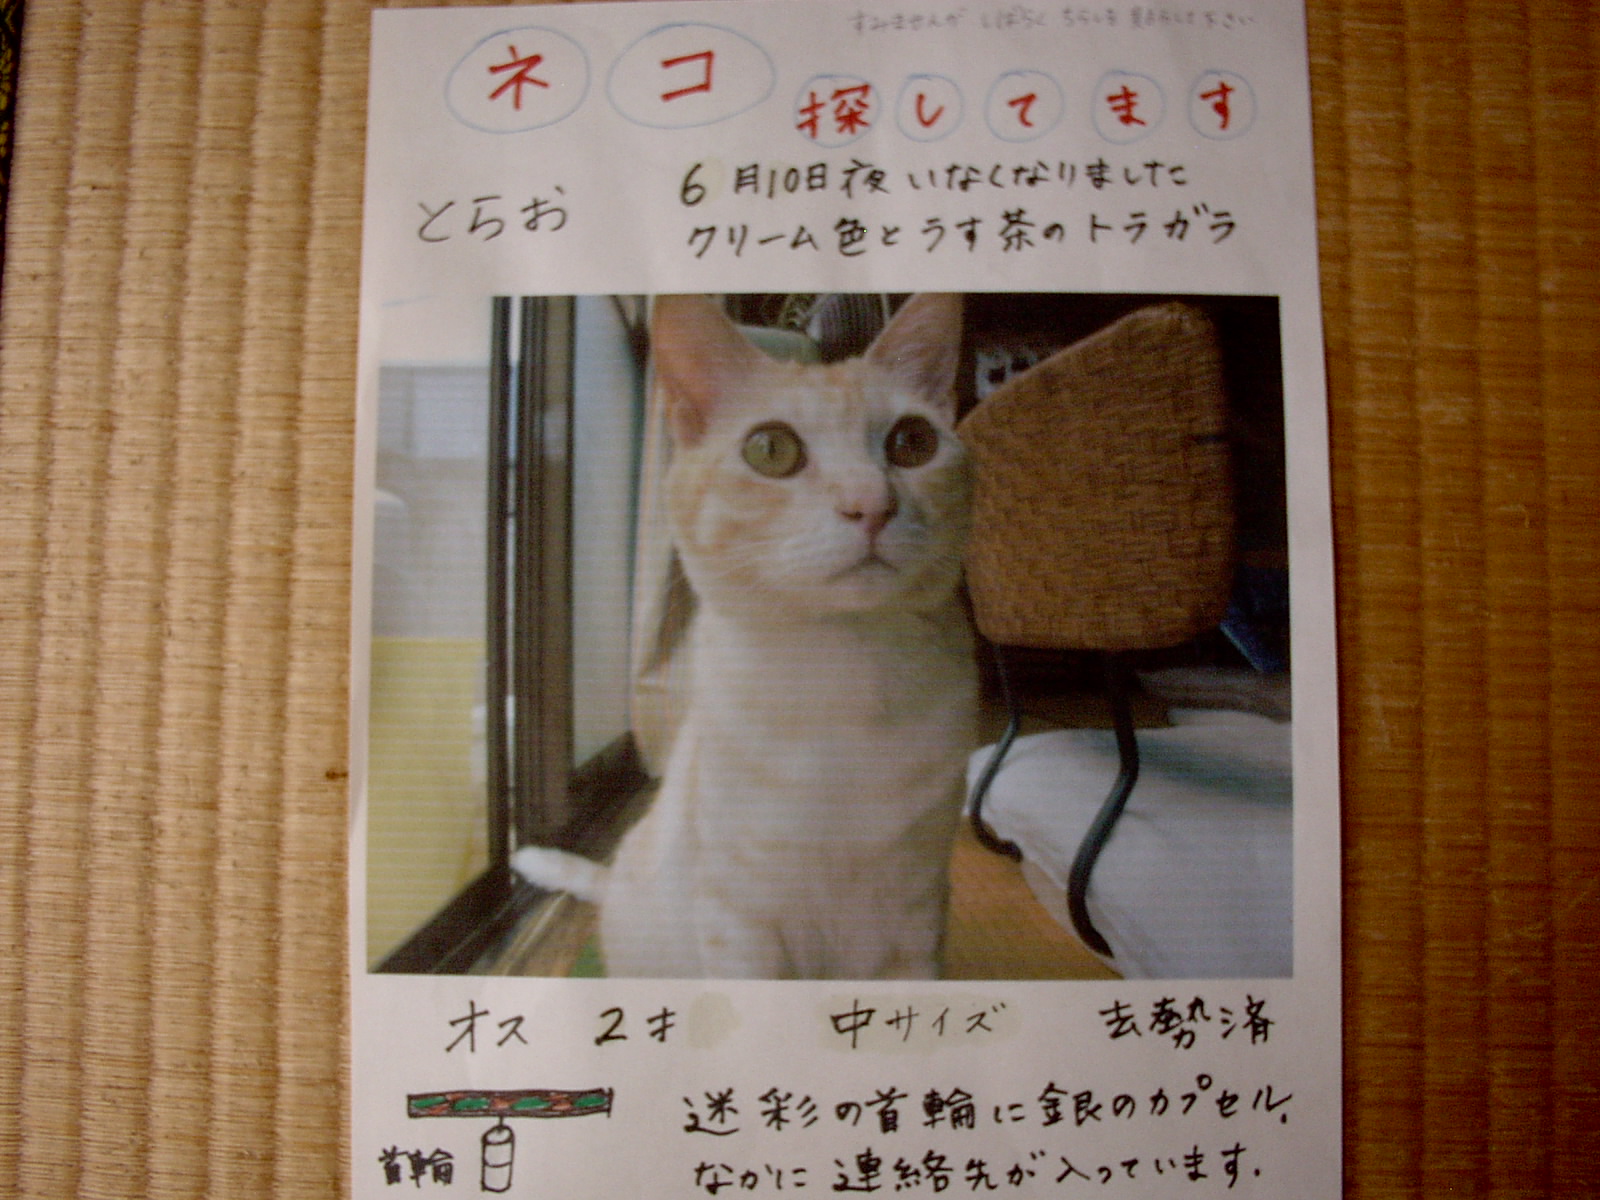 すみませんが しばらく ちらしを 見せて下さい
ネコ 探してます
とらお
6月10日夜 いなくなりました
クリーム色とうす茶のトラガラ
オス 2才 中サイズ 去勢済
首輪
迷彩の首輪に銀のカプセル.
なかに連絡先が入っています.